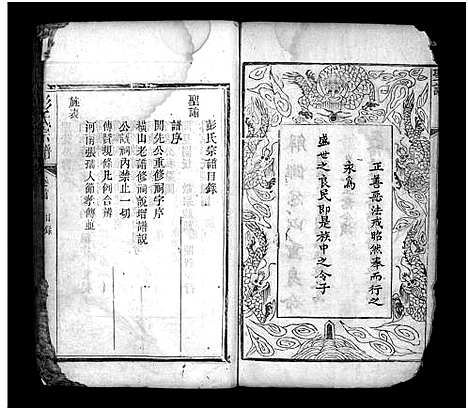 聖諭
正善惡法戒昭然奉而行之
永為
盛世之良民即是族中之令子
彭氏宗譜
目錄
彭氏宗譜目錄
聖諭
譜序
開先公重修祠字序
橫山老譜修祠說增譜說
公議祠內禁止一切
傳現條比例合辨
河南張璞人節孝傳並
旌表